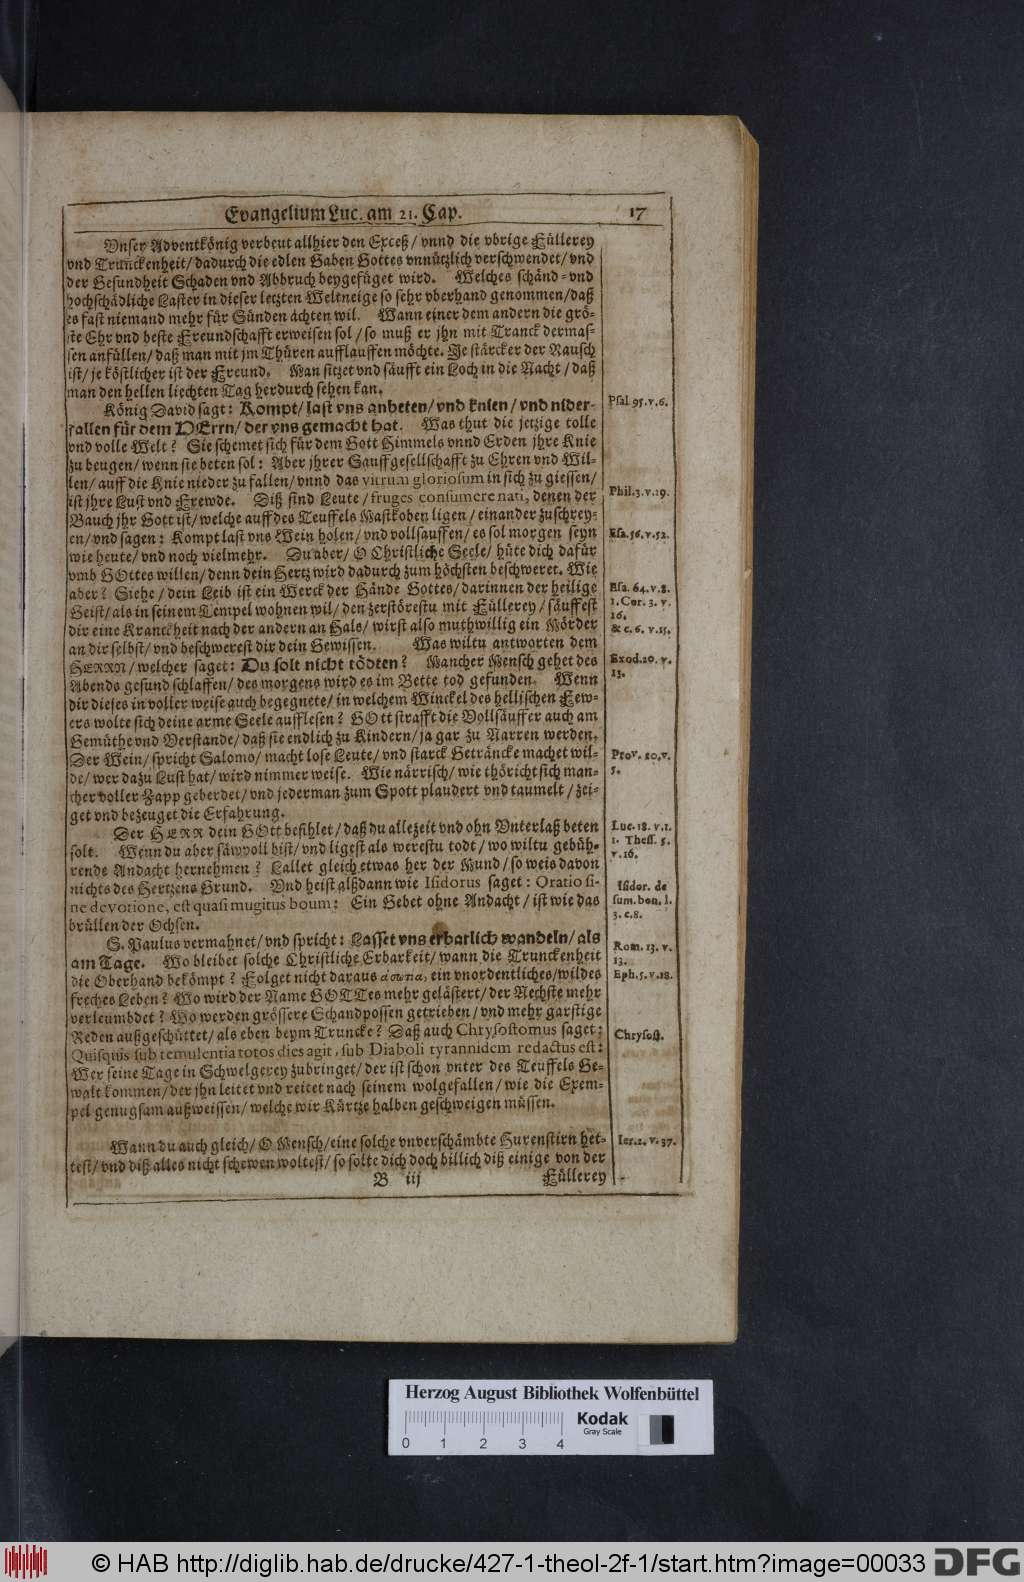 Evangelium Luc. am 21. Cap. 17
Vnser Adventkönig verbeut allhier den Exceß / vnnd die vbrige Füllerey
vnd Trunckenheit / dadurch die edlen Gaben Gottes vnnützlich verschwendet / vnd
der Gesundheit Schaden vnd Abbruch beygefüget wird. Welches schänd- vnd
hochschädliche Laster in dieser letzten Weltneige so sehr vberhand genommen / daß
es fast niemand mehr für Sünden achten wil. Wann einer dem andern die grö-
ste Ehr vnd beste Freundschafft erweisen sol / so muß er jhn mit Tranck dermas-
sen anfüllen / daß man mit jm Thüren aufflauffen möchte. Je stärcker der Rausch
ist / je köstlicher ist der Freund. Man sitzet vnd säufft ein Loch in die Nacht / daß
man den hellen liechten Tag herdurch sehen kan.
König David sagt: Kompt / last vns anbeten / vnd knien / vnd nider- Psal 95. v. 6.
fallen für dem HErrn / der vns gemacht hat. Was thut die jetzige tolle
vnd volle Welt? Sie schemet sich für dem Gott Himmels vnnd Erden jhre Knie
zu beugen / wenn sie beten sol: Aber jhrer Sauffgesellschafft zu Ehren vnd Wil-
len / auff die Knie nieder zu fallen / vnnd das vitrum gloriosum in sich zu giessen /
ist jhre Lust vnd Frewde. Diß sind Leute / fruges consumere nati, denen der Phil. 3. v. 19.
Bauch jhr Gott ist / welche auff des Teuffels Mastkoben ligen / einander zuschrey-
en / vnd sagen: Kompt last vns Wein holen / vnd vollsauffen / es sol morgen seyn Esa. 56. v. 52.
wie heute / vnd noch vielmehr. Du aber / O Christliche Seele / hüte dich dafür
vmb GOttes willen / denn dein Hertz wird dadurch zum höchsten beschweret. Wie
aber? Siehe / dein Leib ist ein Werck der Hände Gottes / darinnen der heilige Esa. 64. v. 8.
Geist / als in seinem Tempel wohnen wil / den zerstörestu mit Füllerey / säuffest 1. Cor. 3. v. 16.
dir eine Kranckheit nach der andern an Hals / wirst also muthwillig ein Mörder & c. 6. v. 15.
an dir selbst / vnd beschwerest dir dein Gewissen. Was wiltu antworten dem
HERRN / welcher saget: Du solt nicht tödten? Mancher Mensch gehet des Exod. 20. v. 13.
Abends gesund schlaffen / des morgens wird es im Bette tod gefunden. Wenn
dir dieses in voller weise auch begegnete / in welchem Winckel des hellischen Few-
ers wolte sich deine arme Seele aufflesen? GOtt strafft die Vollsäuffer auch am
Gemüthe vnd Verstande / daß sie endlich zu Kindern / ja gar zu Narren werden.
Der Wein / spricht Salomo / macht lose Leute / vnd starck Geträncke machet wil- Prov. 20. v. 5.
de / wer dazu Lust hat / wird nimmer weise. Wie närrisch / wie thöricht sich man-
cher voller Zapp geberdet / vnd jederman zum Spott plaudert vnd taumelt / zei-
get vnd bezeuget die Erfahrung.
Der HERR dein GOtt befihlet / daß du allezeit vnd ohn Vnterlaß beten Luc. 18. v. 1.
solt. Wenn du aber säwvoll bist / vnd ligest als werestu todt / wo wiltu gebüh- 1. Thess. 5. v. 16.
rende Andacht hernehmen? Lallet gleich etwas her der Mund / so weis davon
nichts des Hertzens Grund. Vnd heist alßdann wie Isidorus saget: Oratio si- Isidor. de
ne devotione, est quasi mugitus boum: Ein Gebet ohne Andacht / ist wie das sum. bon. l.
brüllen der Ochsen. 3. c. 8.
S. Paulus vermahnet / vnd spricht: Lasset vns erbarlich wandeln / als Rom. 13. v.
am Tage. Wo bleibet solche Christliche Erbarkeit / wann die Trunckenheit 13.
die Oberhand bekömpt? Folget nicht daraus ἀσωτία, ein vnordentliches / wildes Eph. 5. v. 18.
freches Leben? Wo wird der Name GOTTes mehr gelästert / der Nechste mehr
verleumbdet? Wo werden grössere Schandpossen getrieben / vnd mehr garstige
Reden außgeschüttet / als eben beym Truncke? Daß auch Chrysostomus saget: Chrysost.
Quisquis sub temulentia totos dies agit, sub Diaboli tyrannidem redactus est:
Wer seine Tage in Schwelgerey zubringet / der ist schon vnter des Teuffels Ge-
walt kommen / der jhn leitet vnd reitet nach seinem wolgefallen / wie die Exem-
pel genugsam außweissen / welche wir Kürtze halben geschweigen müssen.
Wann du auch gleich / O Mensch / eine solche vnverschämbte Hurenstirn het- Ier. 2. v. 37.
test / vnd diß alles nicht schewen woltest / so solte dich doch billich diß einige von der
B iij Füllerey
Herzog August Bibliothek Wolfenbüttel
0 1 2 3 4
Kodak
Gray Scale
© HAB http://diglib.hab.de/drucke/427-1-theol-2f-1/start.htm?image=00033
DFG